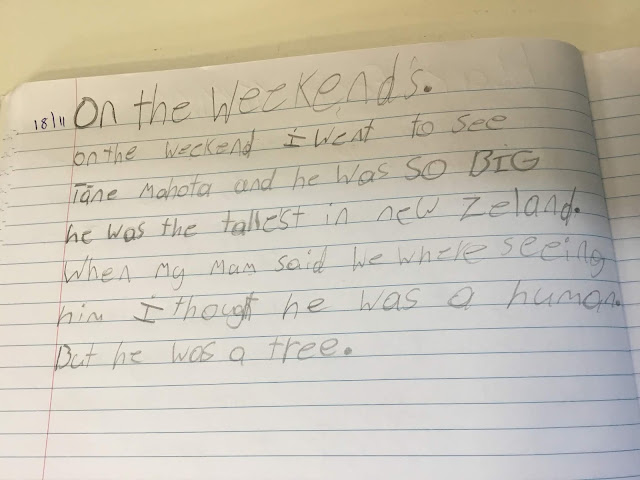 18/11 On the Weekend's.
on the weekend I went to see
Tāne Mahota and he was SO BIG
he was the tallest in new Zeland.
When my mam said we where seeing
him I though he was a human.
But he was a tree.